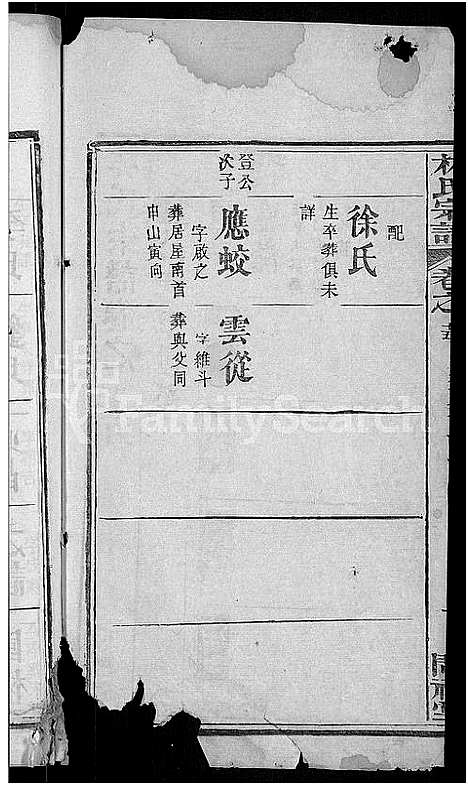 林氏宗譜
卷之
配
徐氏
生卒葬俱未
詳
登公
次子
應蛟
字啟之
葬居屋南首
申山寅向
雲從
字維斗
葬與父同
FamilySearch